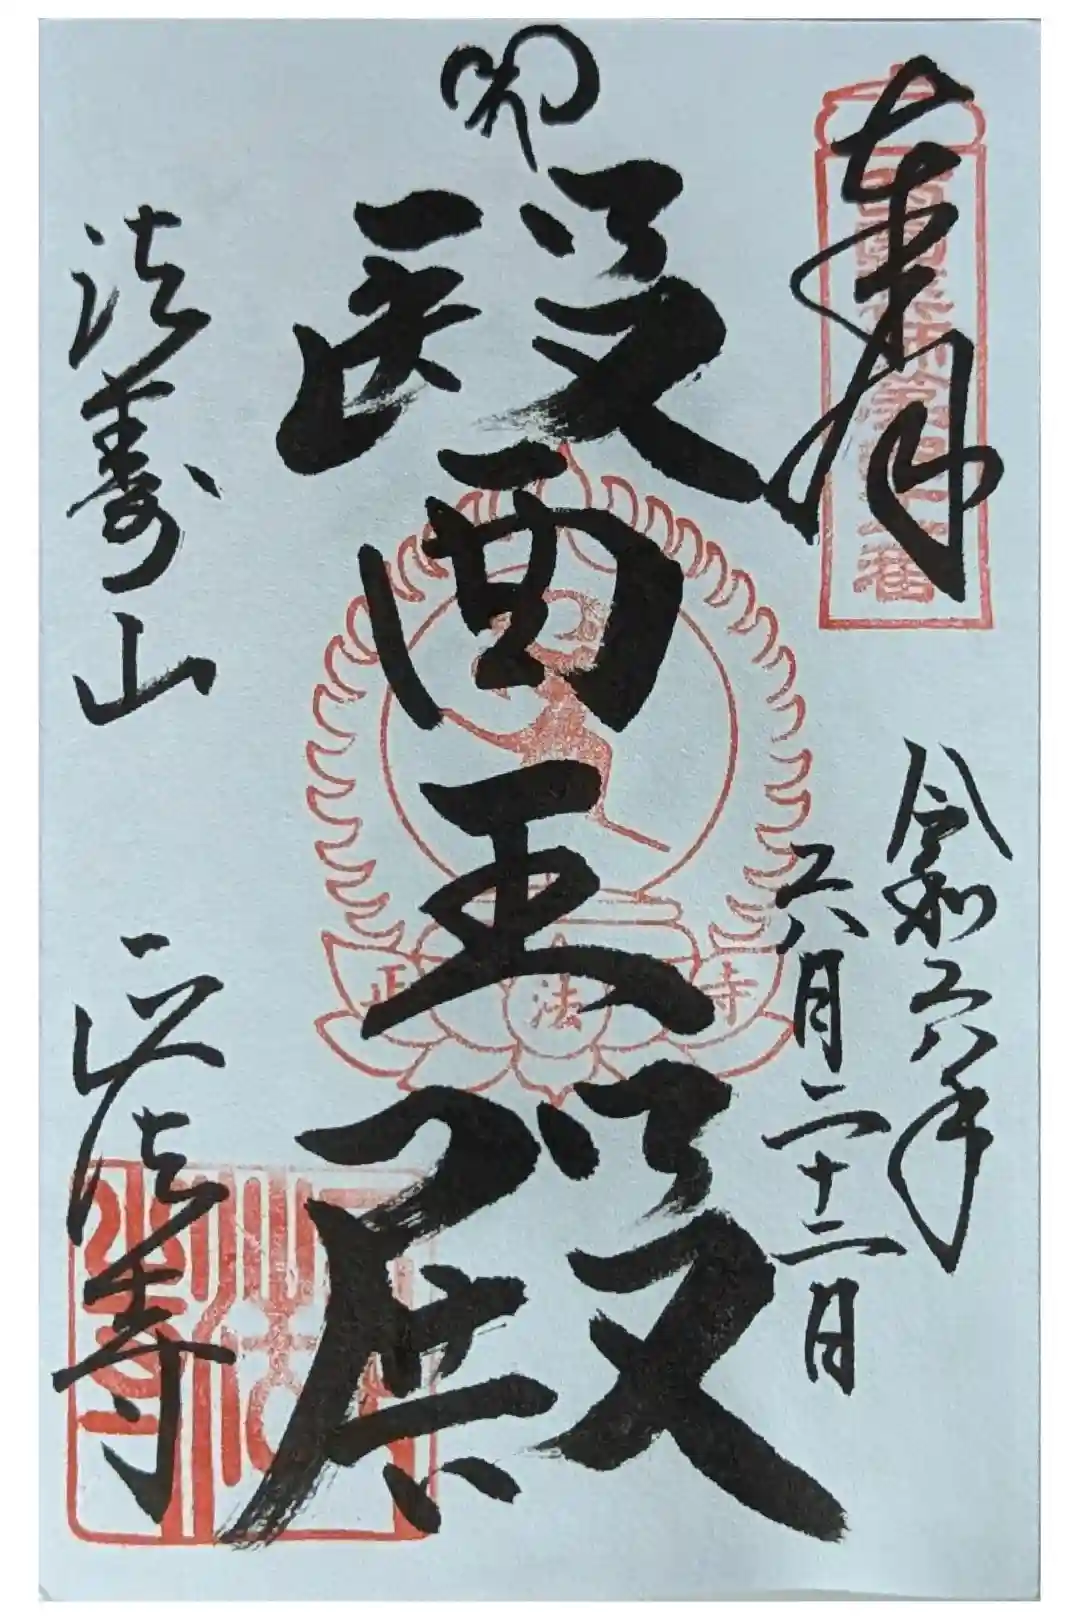 奉拝
令和六年
六月二十二日
醫王殿
正法寺
法壽山
正法寺